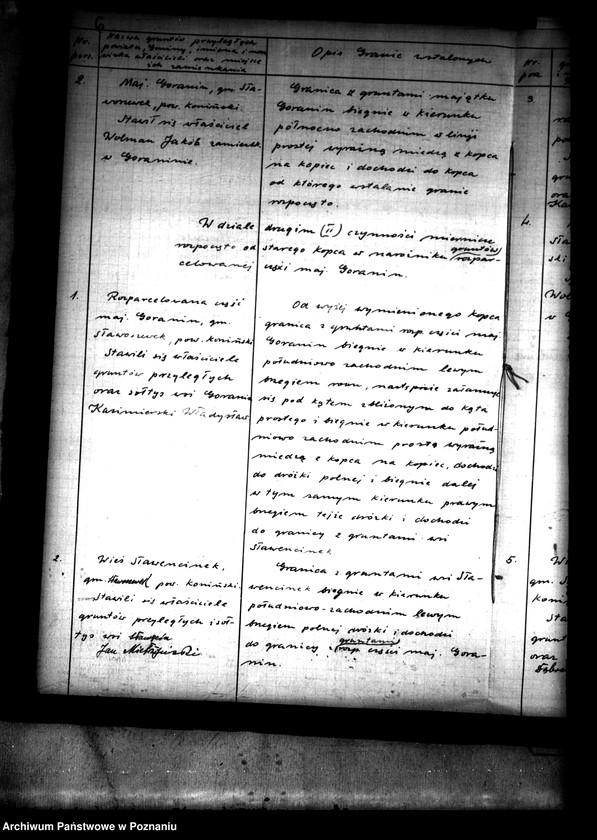 6
Nr. porz.
Nazwa gruntów przyległych
powiatu, Gminy, imiona i naz-
wiska właścicieli oraz miejsce
ich zamieszkania
Opis Granic ustalonych
2.
Maj. Goranin, gm. Sła-
woszewek, pow. koniński.
Stawił się właściciel
Wolman Jakób zamieszk.
w Goraninie.
Granica z gruntami majątku
Goranin biegnie w kierunku
północno zachodnim w linji
prostej wyraźną miedzą z kopca
na kopiec i dochodzi do kopca
od którego ustalanie granic
rozpoczęto.
W dziale drugim (II) czynności miernicze
rozpoczęto od starego kopca w narożniku gruntów rozpar-
celowanej części maj. Goranin.
1.
Rozparcelowana część
maj. Goranin, gm.
Sławoszewek, pow. koniński
Stawili się właściciele
gruntów przyległych
oraz sołtys wsi Goranin
Kazimierski Władysław
Od wyżej wymienionego kopca
granica z gruntami rozp. części maj.
Goranin biegnie w kierunku
południowo zachodnim lewym
brzegiem rowu, następnie załamuje
się pod kątem zbliżonym do kąta
prostego i biegnie w kierunku połud-
niowo zachodnim prostą wyraźną
miedzą z kopca na kopiec, dochodzi
do dróżki polnej i biegnie dalej
w tym samym kierunku prawym
brzegiem tejże dróżki i dochodzi
do granicy z gruntami wsi
Sławencinek
2.
Wieś Sławencinek,
gm. pow. koniński.
Stawili się właściciele
gruntów przyległych i soł-
tys wsi
Jan
Granica z gruntami wsi Sła-
wencinek biegnie w kierunku
południowo-zachodnim lewym
brzegiem polnej dróżki i dochodzi
do granicy z gruntami rozp. części maj. Gora-
nin.
Nr. porz.
3.
4.
5.
Archiwum Państwowe w Poznaniu